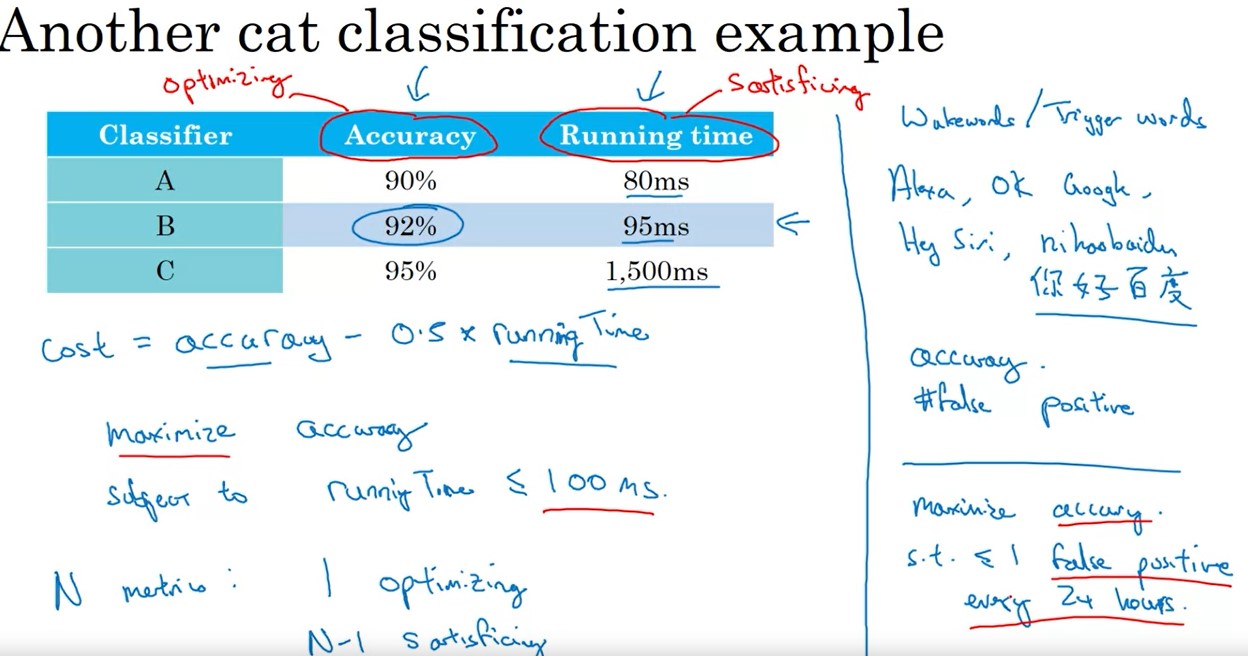 Another cat classification example
optimizing
Satisficing
Classifier Accuracy Running time
A 90% 80ms
B 92% 95ms
C 95% 1,500ms
cost = accuracy - 0.5 x running Time
maximize accuracy
subject to running Time ≤ 100 ms.
N metrics: 1 optimizing
N-1 satisficing
Wakewords / Trigger words
Alexa, OK Google,
Hey Siri, nihaobaidu
你好百度
accuracy.
#false positive
Maximize accuracy.
s.t. ≤ 1 false positive
every 24 hours.